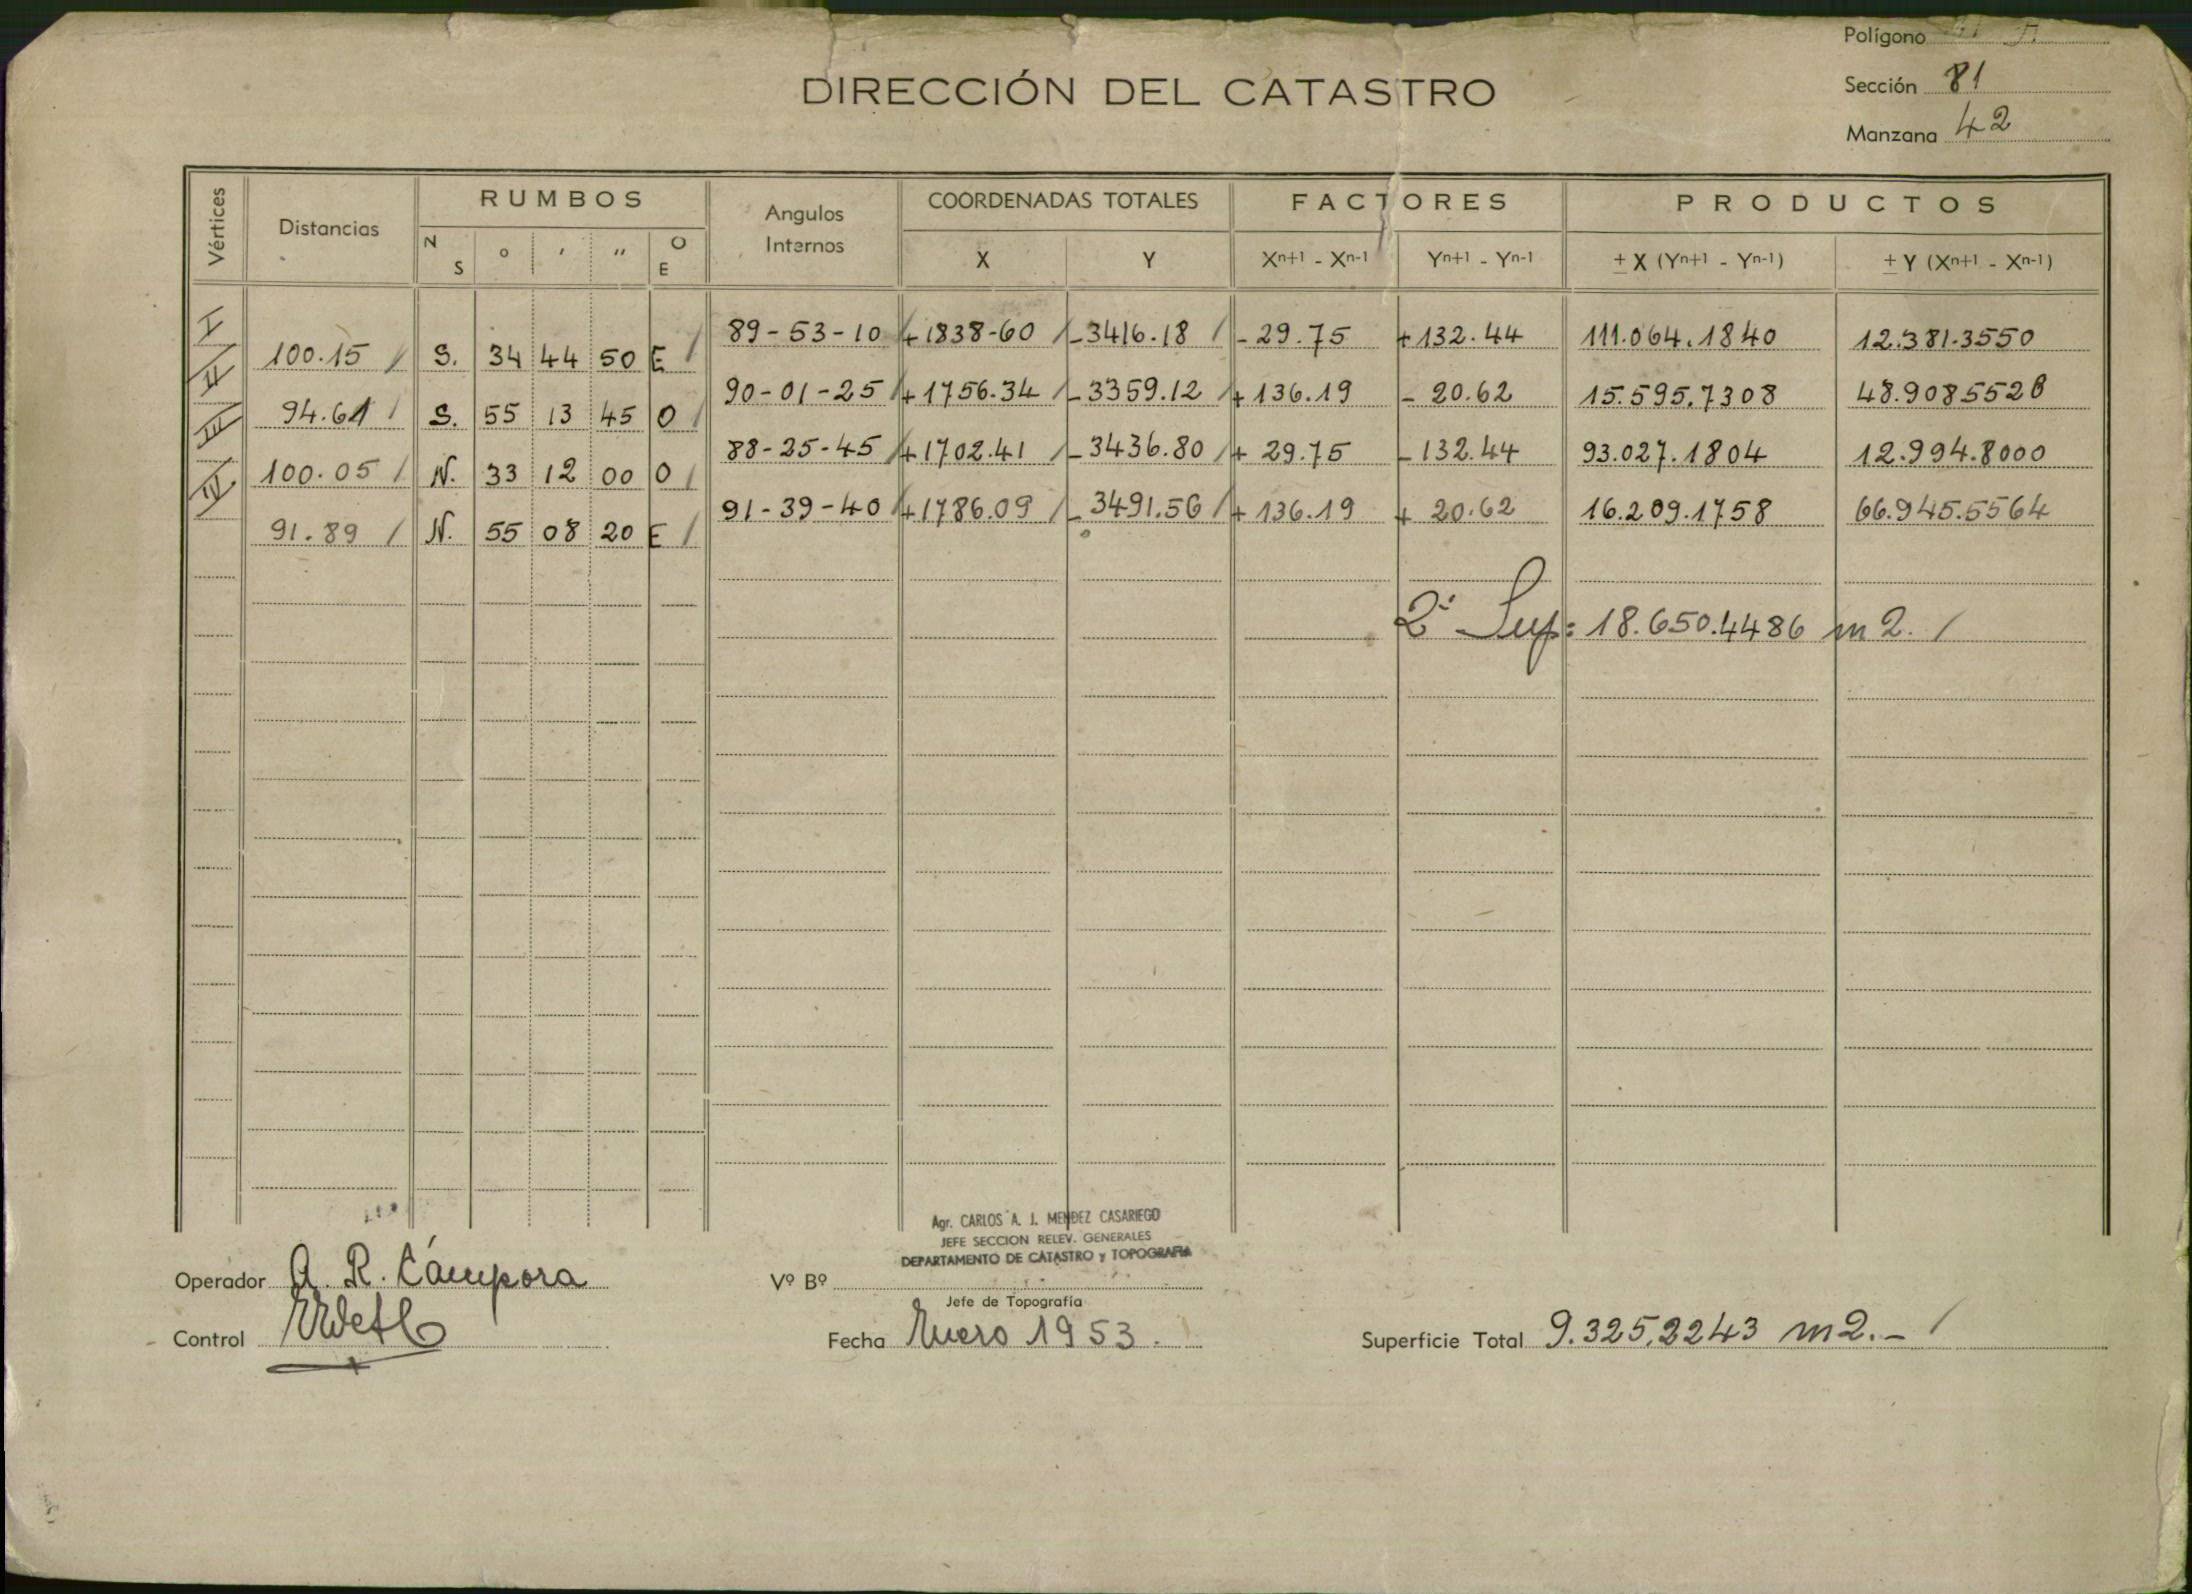 Polígono
DIRECCIÓN DEL CATASTRO
Sección 81
Manzana 42
Vértices Distancias RUMBOS Angulos Internos COORDENADAS TOTALES FACTORES PRODUCTOS
N S ° ' " O E X Y Xn+1 - Xn-1 Yn+1 - Yn-1 ± X (Yn+1 - Yn-1) ± Y (Xn+1 - Xn-1)
I 89-53-10 +1838-60 -3416.18 -29.75 +132.44 111.064.1840 12.381.3550
100.15 S. 34 44 50 E
II 90-01-25 +1756.34 -3359.12 +136.19 -20.62 15.595.7308 48.908.5528
94.61 S. 55 13 45 O
III 88-25-45 +1702.41 -3436.80 +29.75 -132.44 93.027.1804 12.994.8000
100.05 N. 33 12 00 O
IV 91-39-40 +1786.09 -3491.56 +136.19 +20.62 16.209.1758 66.945.5564
91.89 N. 55 08 20 E
2ª Sup: 18.650.4486 m2.
Agr. CARLOS A. J. MENDEZ CASARIEGO
JEFE SECCION RELEV. GENERALES
DEPARTAMENTO DE CATASTRO y TOPOGRAFIA
Operador A. R. Cámpora Vº Bº
Jefe de Topografía
Control Fecha Enero 1953. Superficie Total 9.325,2243 m2.-